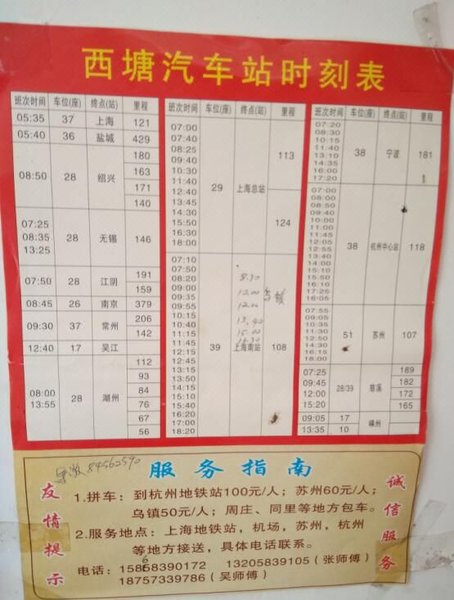 西塘汽车站时刻表
班次时间 车位(座) 终点(站) 里程
05:35 37 上海 121
05:40 36 盐城 429
08:50 28 绍兴 180
163
171
140
07:25 28 无锡 146
08:35
13:25
07:50 28 江阴 191
159
08:45 26 南京 379
09:30 37 常州 206
142
12:40 17 吴江
08:00 28 湖州 112
13:55 93
84
76
67
56
班次时间 车位(座) 终点(站) 里程
07:00 29 上海总站 113
07:40
08:25
09:40
10:30
11:40
12:40 124
13:45
14:30
15:50
16:30
18:00
07:10 39 上海南站 108
07:50
08:30
09:00
09:35
09:55
10:15
10:40
11:15
11:45
12:15
12:45
13:20
14:15
15:05
15:50
16:20
17:00
17:20
18:20
班次时间 车位(座) 终点(站) 里程
07:20 38 宁波 181
08:30
10:15
11:40
13:10
14:35
16:00
17:20
07:00 38 杭州中心站 118
08:00
08:50
09:40
10:55
11:45
12:05
12:55
13:40
14:35
15:40
16:25
17:25
07:55 51 苏州 107
09:35
10:55
12:35
14:20
14:55
16:15
18:00
07:25 28/39 慈溪 189
09:45 182
12:00 172
15:20 165
09:05 17 嵊州
13:35 10
84560590
服务指南
友情提示
诚信服务
1.拼车：到杭州地铁站100元/人；苏州60元/人；
乌镇50元/人；周庄、同里等地方包车。
2.服务地点：上海地铁站，机场，苏州，杭州
等地方接送，具体电话联系。
电话：15858390172 13205839105(张师傅)
18757339786(吴师傅)